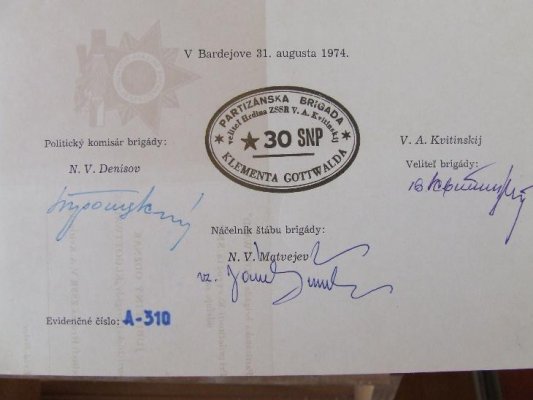 V Bardejove 31. augusta 1974.
PARTIZÁNSKA BRIGÁDA
veliteľ Hrdina ZSSR V. A. Kvitinskij
★ 30 SNP
KLEMENTA GOTTWALDA
Politický komisár brigády:
N. V. Denisov
V. A. Kvitinskij
Veliteľ brigády:
Náčelník štábu brigády:
N. V. Matvejev
vz.
Evidenčné číslo: A-310